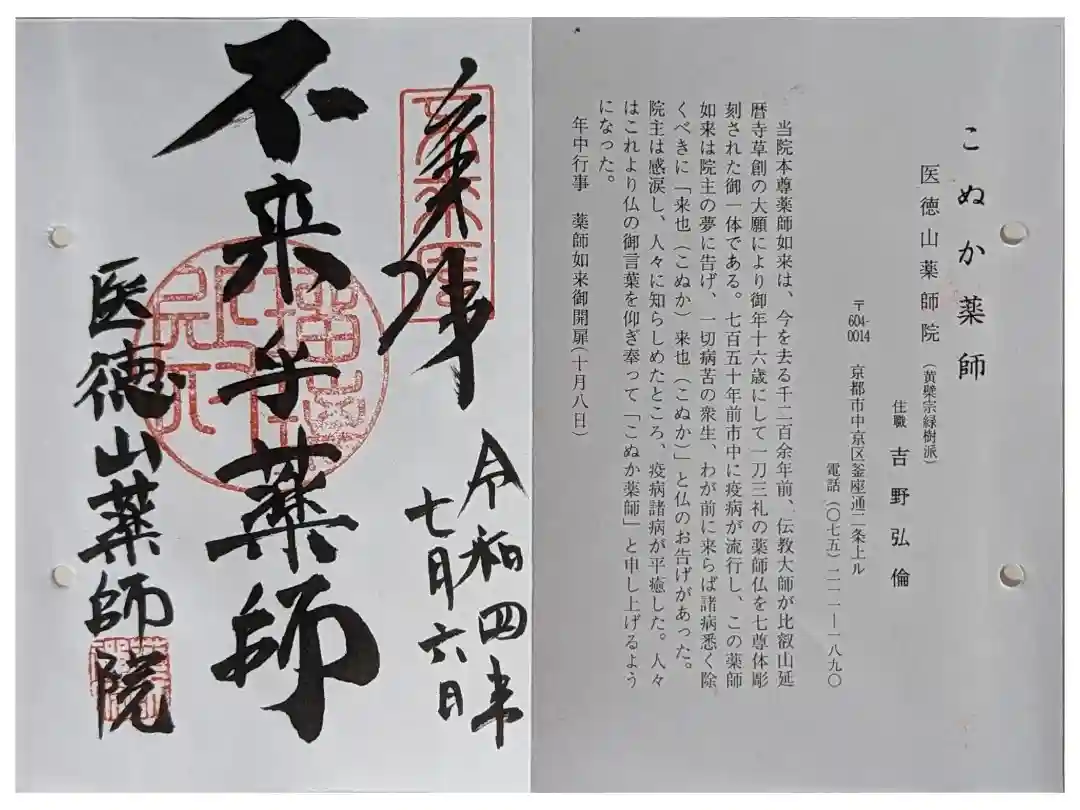 奉拝
令和四年
七月六日
不来乎薬師
医徳山薬師院
こぬか薬師
医徳山薬師院（黄檗宗緑樹派）
住職 吉野弘倫
〒604-0014 京都市中京区釜座通二条上ル
電話（〇七五）二一一―一八九〇
当院本尊薬師如来は、今を去る千二百余年前、伝教大師が比叡山延
暦寺草創の大願により御年十六歳にして一刀三礼の薬師仏を七尊体彫
刻された御一体である。七百五十年前市中に疫病が流行し、この薬師
如来は院主の夢に告げ、一切病苦の衆生、わが前に来らば諸病悉く除
くべきに「来也（こぬか）来也（こぬか）」と仏のお告げがあった。
院主は感涙し、人々に知らしめたところ、疫病諸病が平癒した。人々
はこれより仏の御言葉を仰ぎ奉って「こぬか薬師」と申し上げるよう
になった。
年中行事 薬師如来御開扉（十月八日）